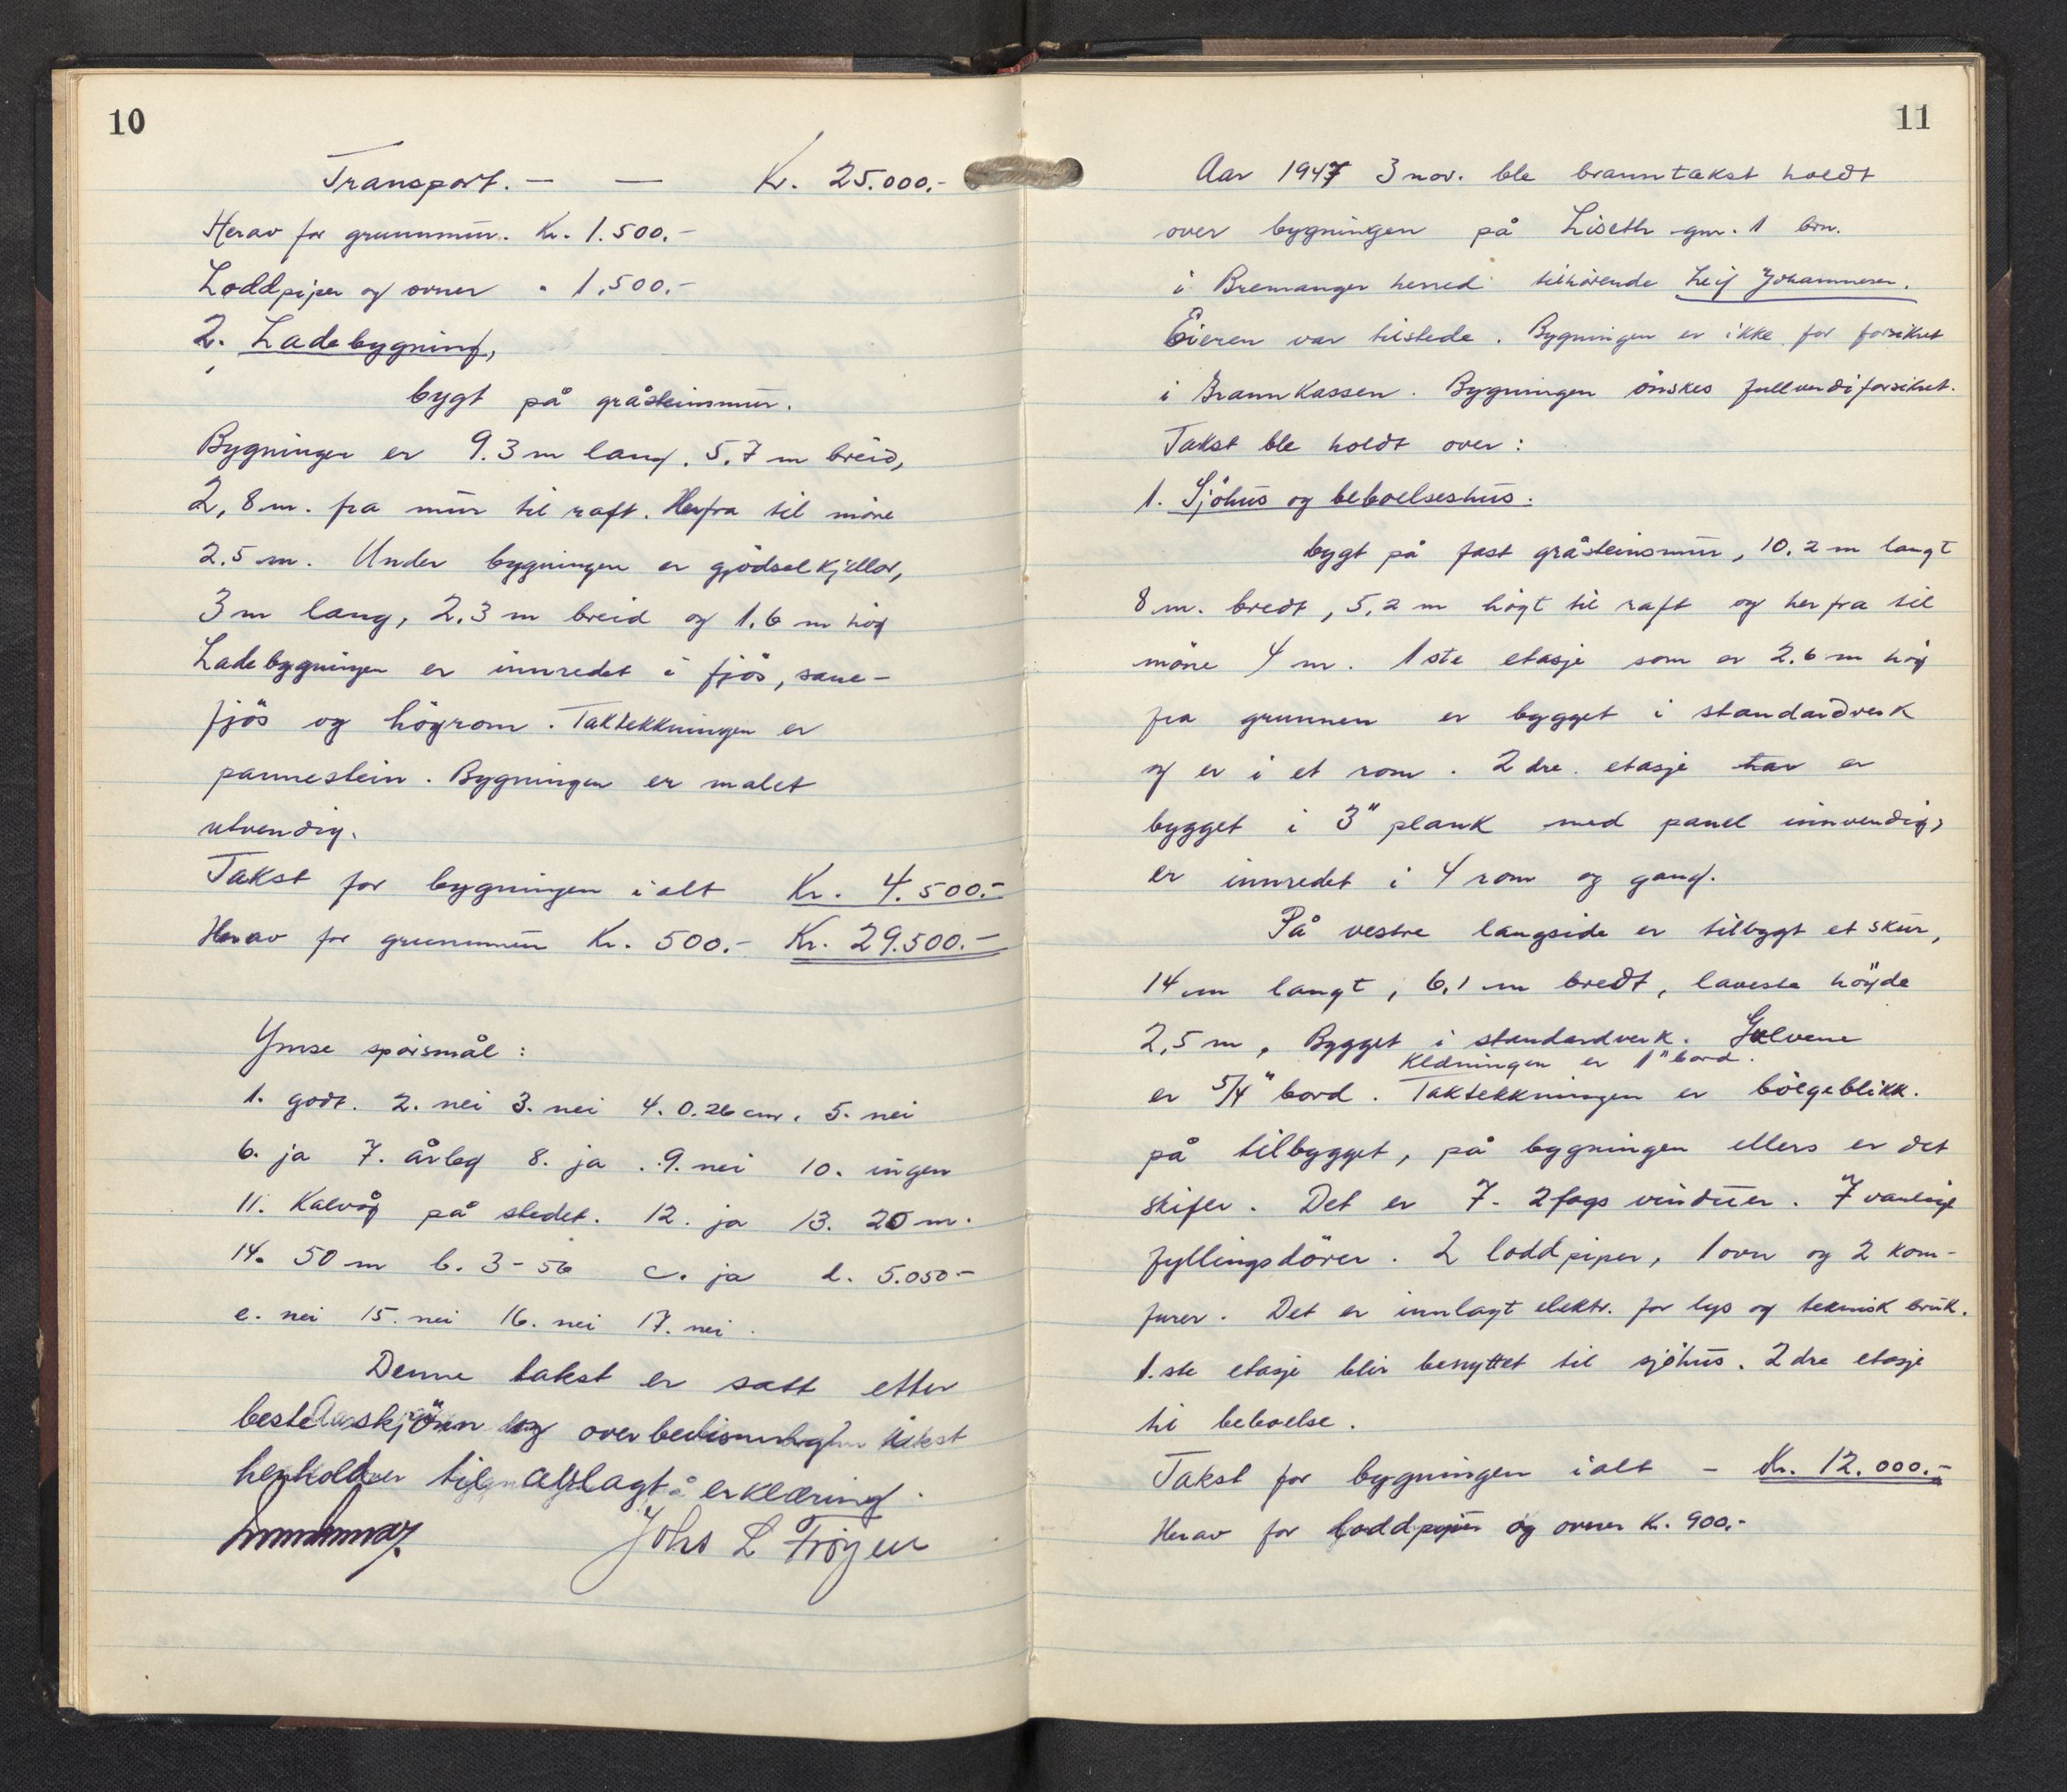 10
Transport. — — Kr. 25.000.-
Herav for grunnmur. Kr. 1.500.-
Loddpiper og ovner " 1.500.-
2. Ladebygning,
bygt på gråsteinsmur.
Bygningen er 9.3 m lang. 5.7 m breid,
2,8 m. fra mur til raft. Herfra til möne
2.5 m. Under bygningen er gjödselkjellar,
3 m lang, 2.3 m breid og 1.6 m hög
Ladebygningen er innredet i fjös, saue-
fjös og högrom. Taktekkningen er
pannestein. Bygningen er malet
utvendig.
Takst for bygningen i alt Kr. 4.500.-
Herav for grunnmur Kr. 500.- Kr. 29.500.-
Ymse spörsmål :
1. godt. 2. nei 3. nei 4. 0.26 cm. 5. nei
6. ja 7. årleg 8. ja . 9. nei 10. ingen
11. Kalvåg på stedet. 12. ja 13. 20 m.
14. 50 m b. 3-56 c. ja d. 5.050-
e. nei 15. nei 16. nei 17. nei.
Denne takst er satt etter
beste skjönn og overbevisning i
henhold til avlagt erklæring.
Johs L Frøyen
11
Aar 1947 3 nov. ble branntakst holdt
over bygningen på Liseth gnr. 1 brn.
i Bremanger herred tilhörende Leif Johannesen.
Eieren var tilstede. Bygningen er ikke för forsikret
i Brannkassen. Bygningen önskes fullverdiforsikret.
Takst ble holdt over :
1. Sjöhus og beboelseshus.
bygt på fast gråsteinsmur, 10.2 m langt
8 m. bredt, 5,2 m högt til raft og her fra til
möne 4 m. 1 ste etasje som er 2.6 m hög
fra grunnen er bygget i standardverk
og er i et rom. 2 dre. etasje har er
bygget i 3" plank med panel innvendig,
er innredet i 4 rom og gang.
På vestre langside er tilbygt et skur,
14 m langt, 6,1 m bredt, laveste höyde
2,5 m, Bygget i standardverk. Golvene
Kledningen er 1" bord.
er 5/4" bord. Taktekkningen er bölgeblikk.
på tilbygget, på bygningen ellers er det
skifer. Det er 7- 2 fags vinduer. 7 vanlig
fyllingsdörer. 2 loddpiper, 1 ovn og 2 kom-
furer. Det er innlagt elektr. for lys og teknisk bruk.
1. ste etasje blir benyttet til sjöhus. 2 dre etasje
til beboelse.
Takst for bygningen i alt - Kr. 12.000.-
Herav for loddpiper og ovner Kr. 900.-